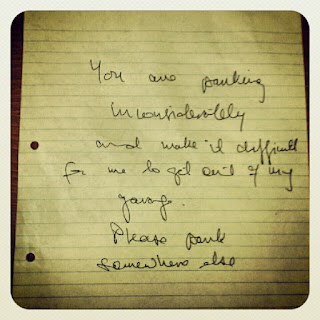 You are parking
inconsiderately
and make it difficult
for me to get out of my
garage.
Please park
somewhere else